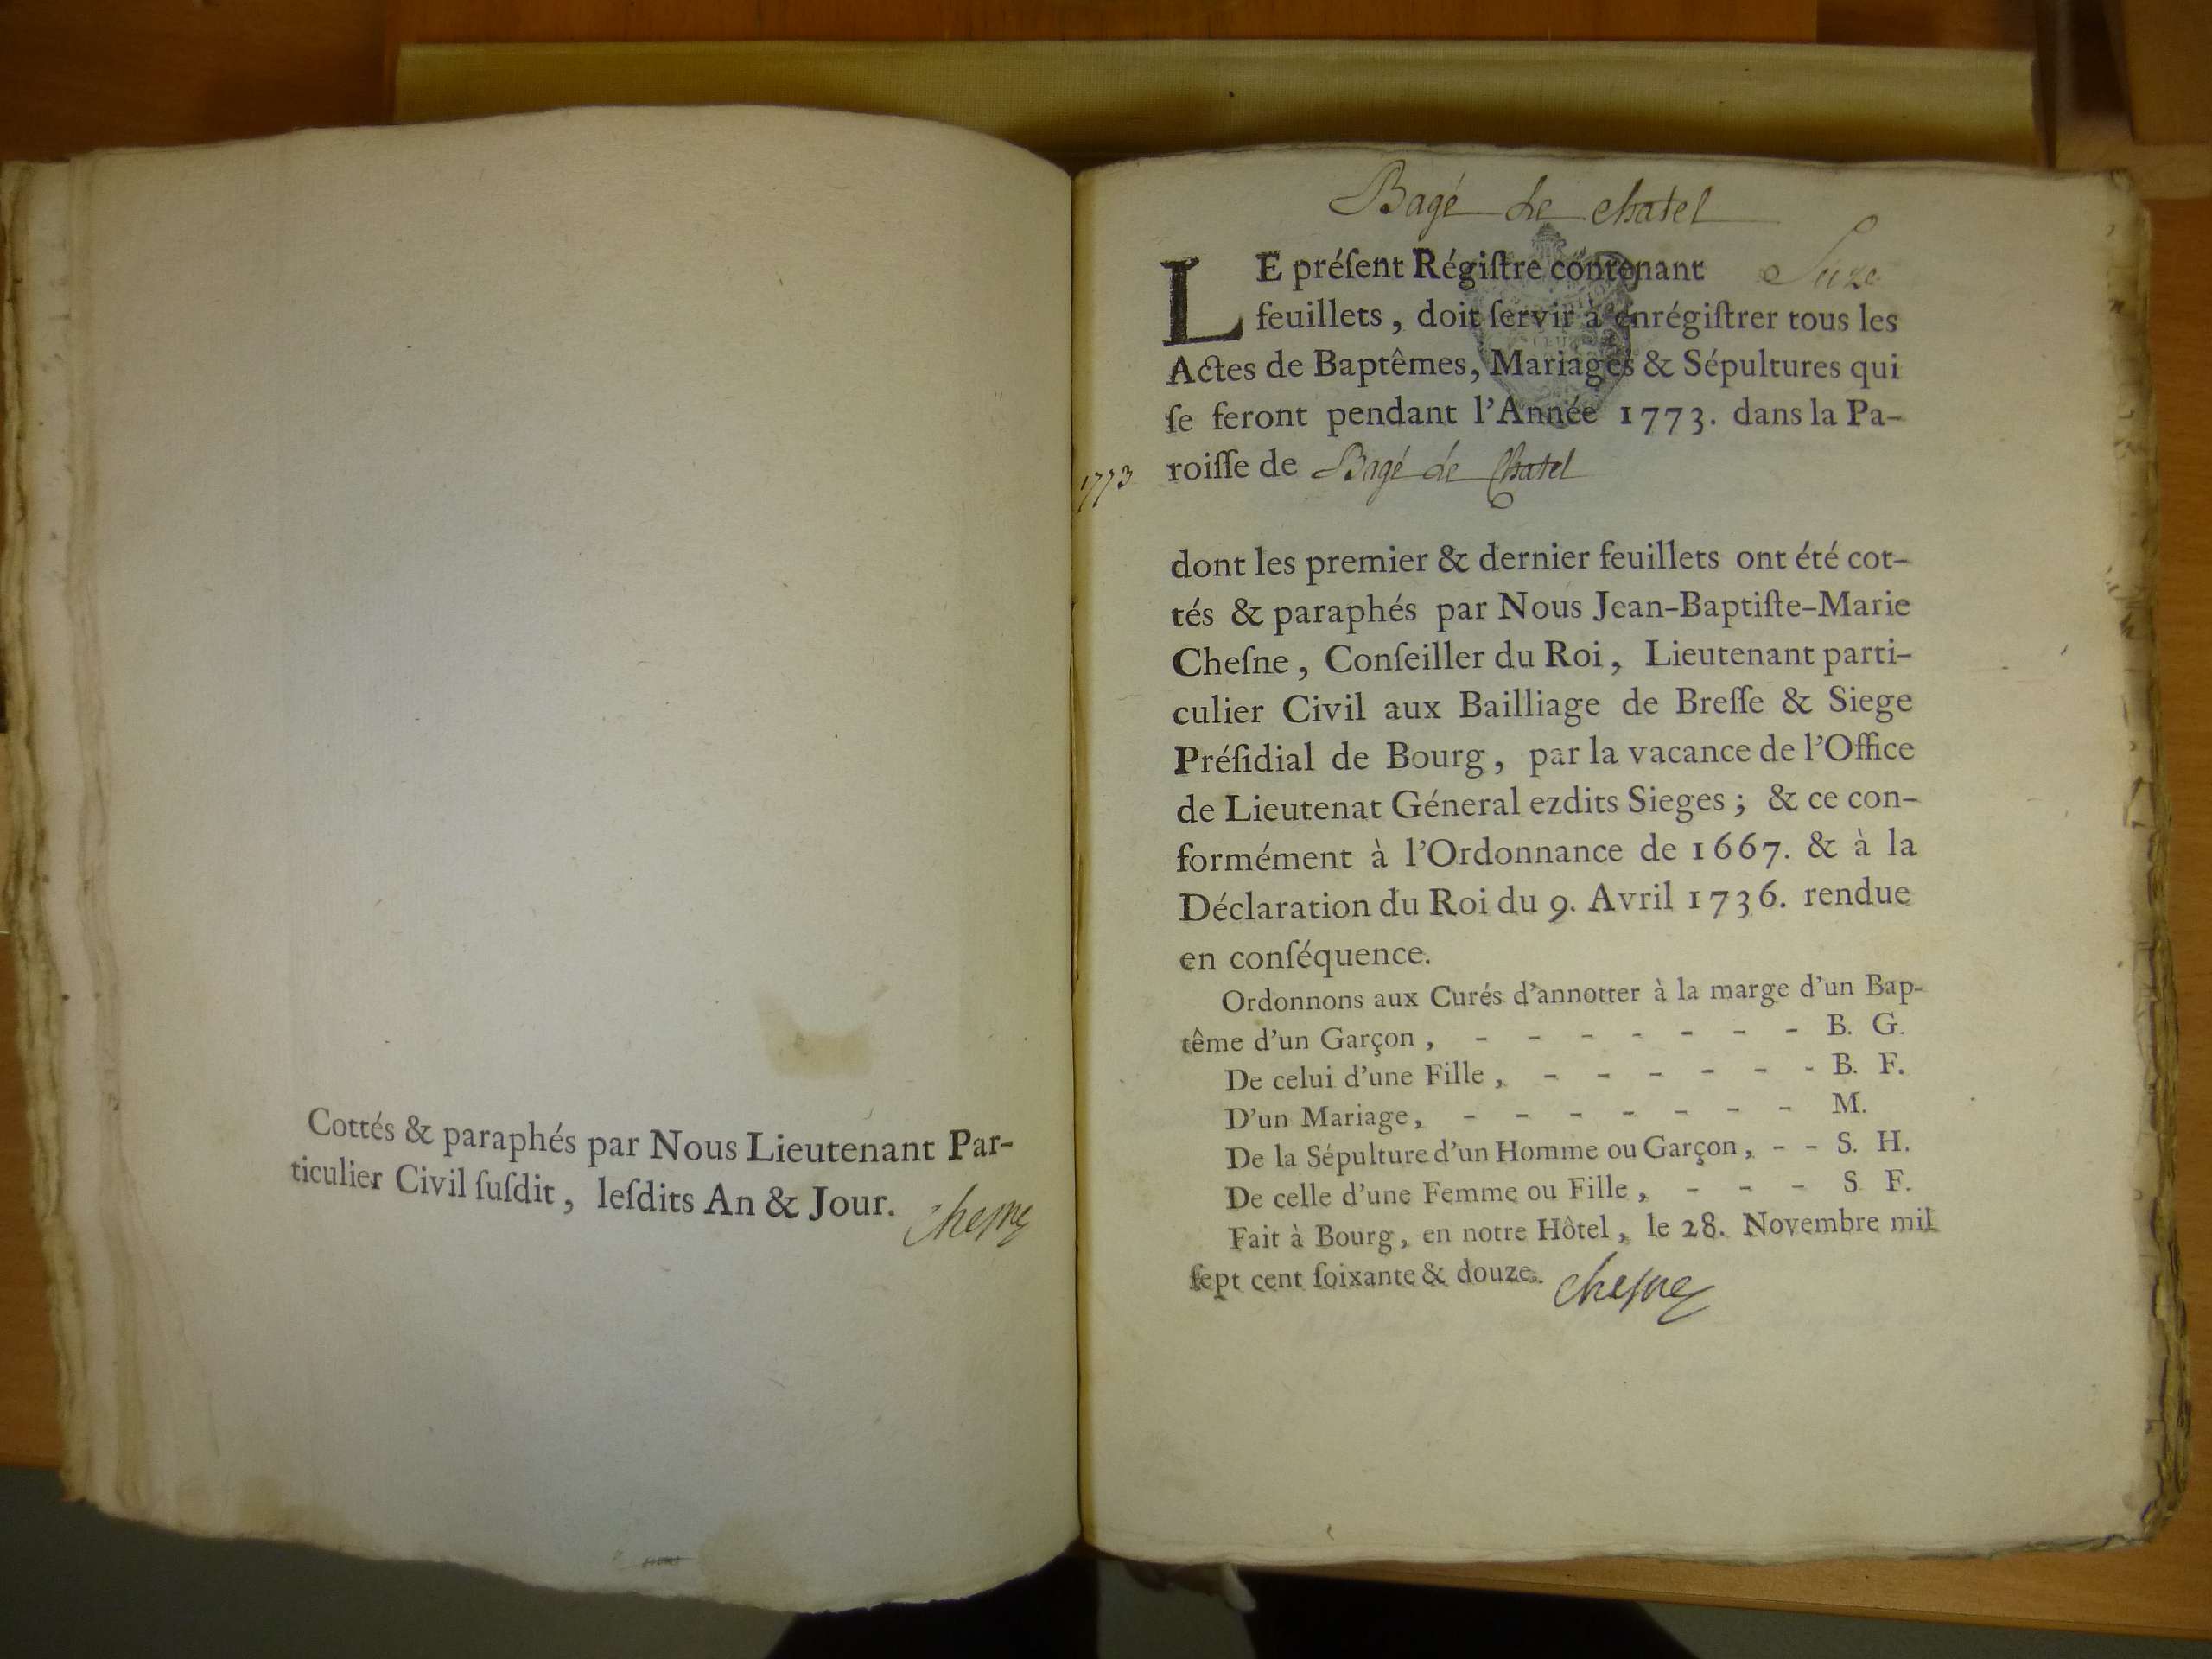 Cottés & paraphés par Nous Lieutenant Par-
ticulier Civil ſuſdit, leſdits An & Jour. Cheſne
Bagé le chatel
LE préſent Régiſtre contenant Seize
feuillets, doit ſervir à enrégiſtrer tous les
Actes de Baptêmes, Mariages & Sépultures qui
ſe feront pendant l'Année 1773. dans la Pa-
1773
roiſſe de Bagé le Chatel
dont les premier & dernier feuillets ont été cot-
tés & paraphés par Nous Jean-Baptiſte-Marie
Cheſne, Conſeiller du Roi, Lieutenant parti-
culier Civil aux Bailliage de Breſſe & Siege
Préſidial de Bourg, par la vacance de l'Office
de Lieutenat Géneral ezdits Sieges; & ce con-
formément à l'Ordonnance de 1667. & à la
Déclaration du Roi du 9. Avril 1736. rendue
en conſéquence.
Ordonnons aux Curés d'annotter à la marge d'un Bap-
tême d'un Garçon, - - - - - - - B. G.
De celui d'une Fille, - - - - - - B. F.
D'un Mariage, - - - - - - - M.
De la Sépulture d'un Homme ou Garçon, - - S. H.
De celle d'une Femme ou Fille, - - - S F.
Fait à Bourg, en notre Hôtel, le 28. Novembre mil
ſept cent ſoixante & douze. Cheſne